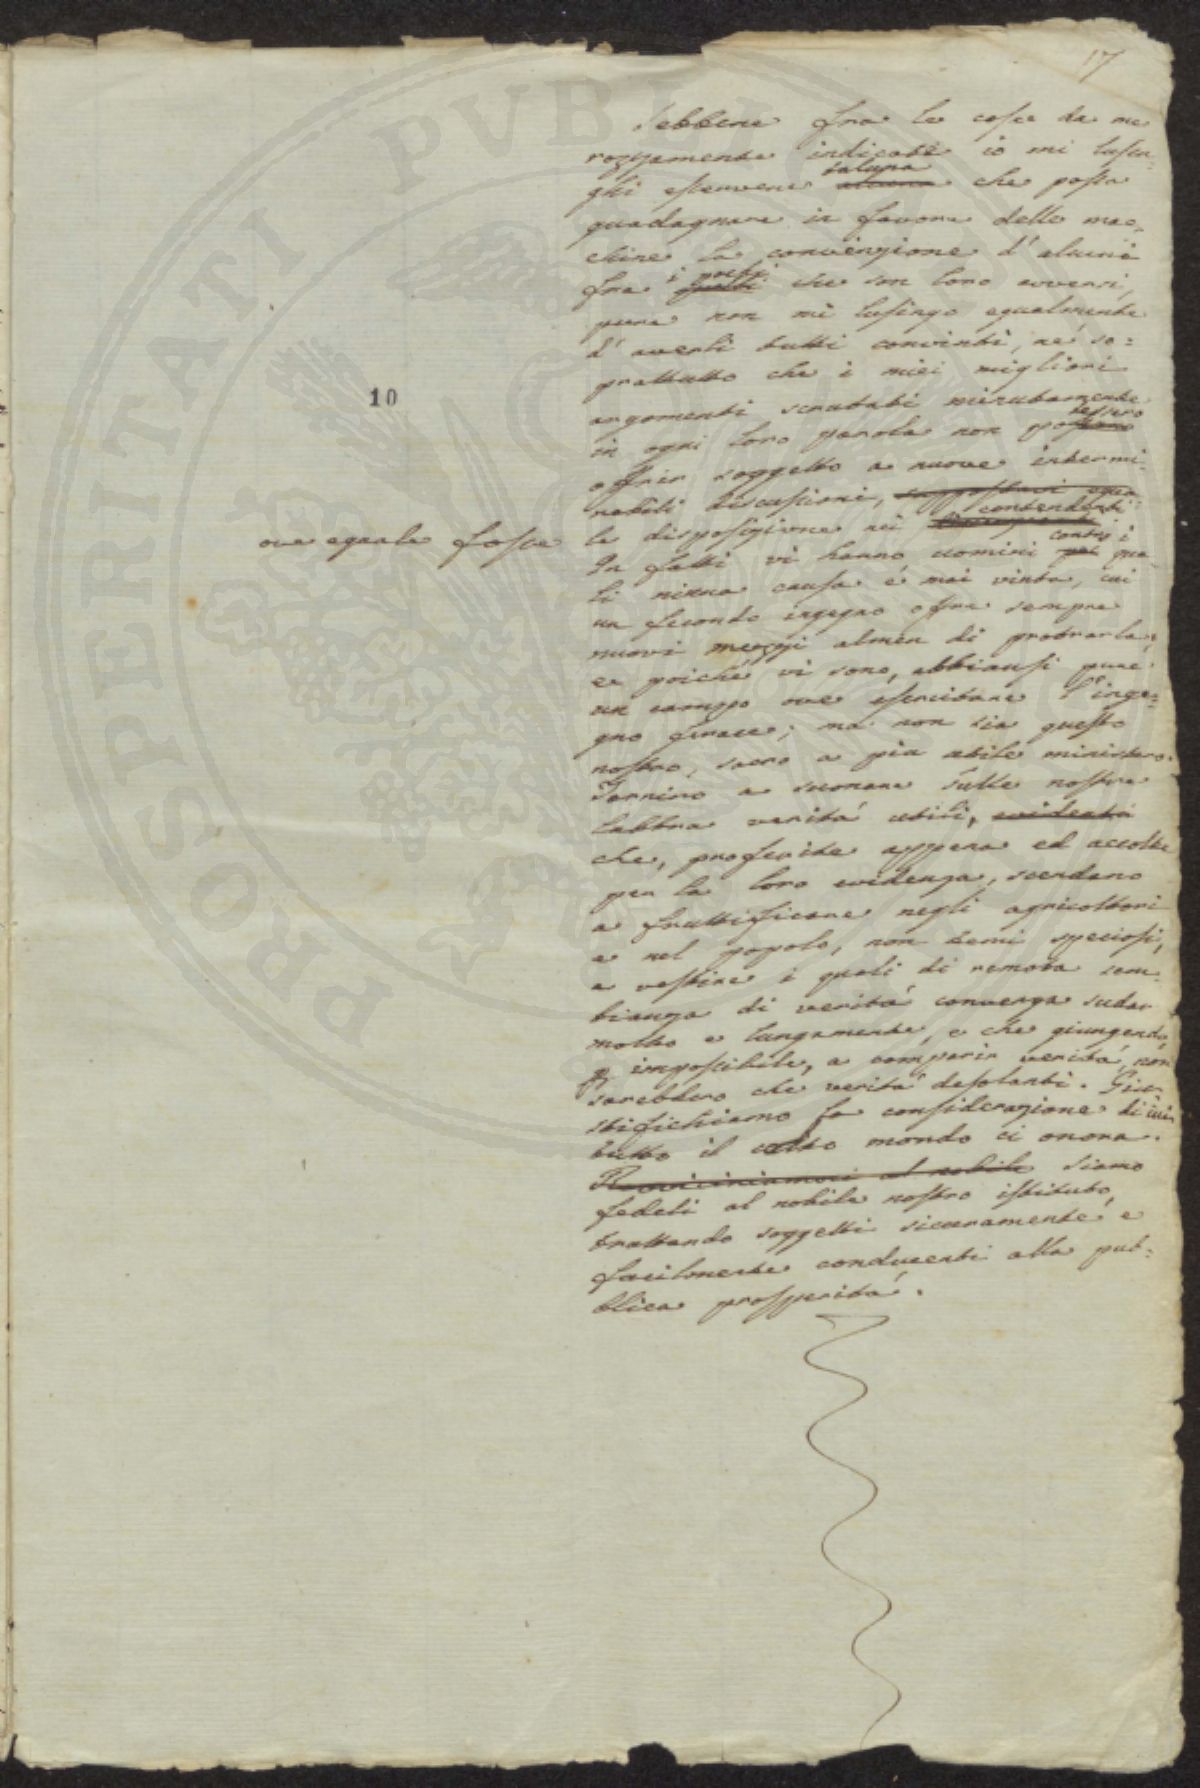 17
Sebbene fra le cose da me
rozzamente indicate io mi lusin-
ghi esservene taluna ~~alcuna~~ che possa
guadagnare in favore delle mac-
chine la convinzione d'alcuni
fra i pochi che son loro avversi,
pure non mi lusingo egualmente
d'averli tutti convinti, né so=
prattutto che i miei migliori
argomenti scrutati minutamente
in ogni loro parola non potessero
offrir soggetto a nuove intermi-
nabili discussioni,
ove eguale fosse
la disposizione nei contendenti
In fatti vi hanno uomini contro i qua-
li niuna causa é mai vinta, cui
un fecondo ingegno offre sempre
nuovi mezzi almen di protrarla;
e poiché vi sono, abbiansi pure
un campo ove esercitare l'inge=
gno ferace; ma non sia questo
nostro, sacro a piu utile ministero.
Tornino a suonare sulle nostre
labbra veritá utili, ~~evidenti~~
che, proferite appena ed accolte
per la loro evidenza, scendano
a fruttificare negli agricoltori
e nel popolo, non temi speciosi,
a vestire i quali di remota sem-
bianza di veritá convenga sudar
molto e lungamente, e che giungendo
impossibile, a comparir veritá, non
sarebbero che veritá desolanti. Giu-
stifichiamo la considerazione di cui
tutto il colto mondo ci onora.
~~Ravviciniamoci al nobile~~ siamo
fedeli al nobile nostro istituto,
trattando soggetti sicuramente e
facilmente conducenti alla pub=
blica prosperitá.
10
PROSPERITATI PVBLI